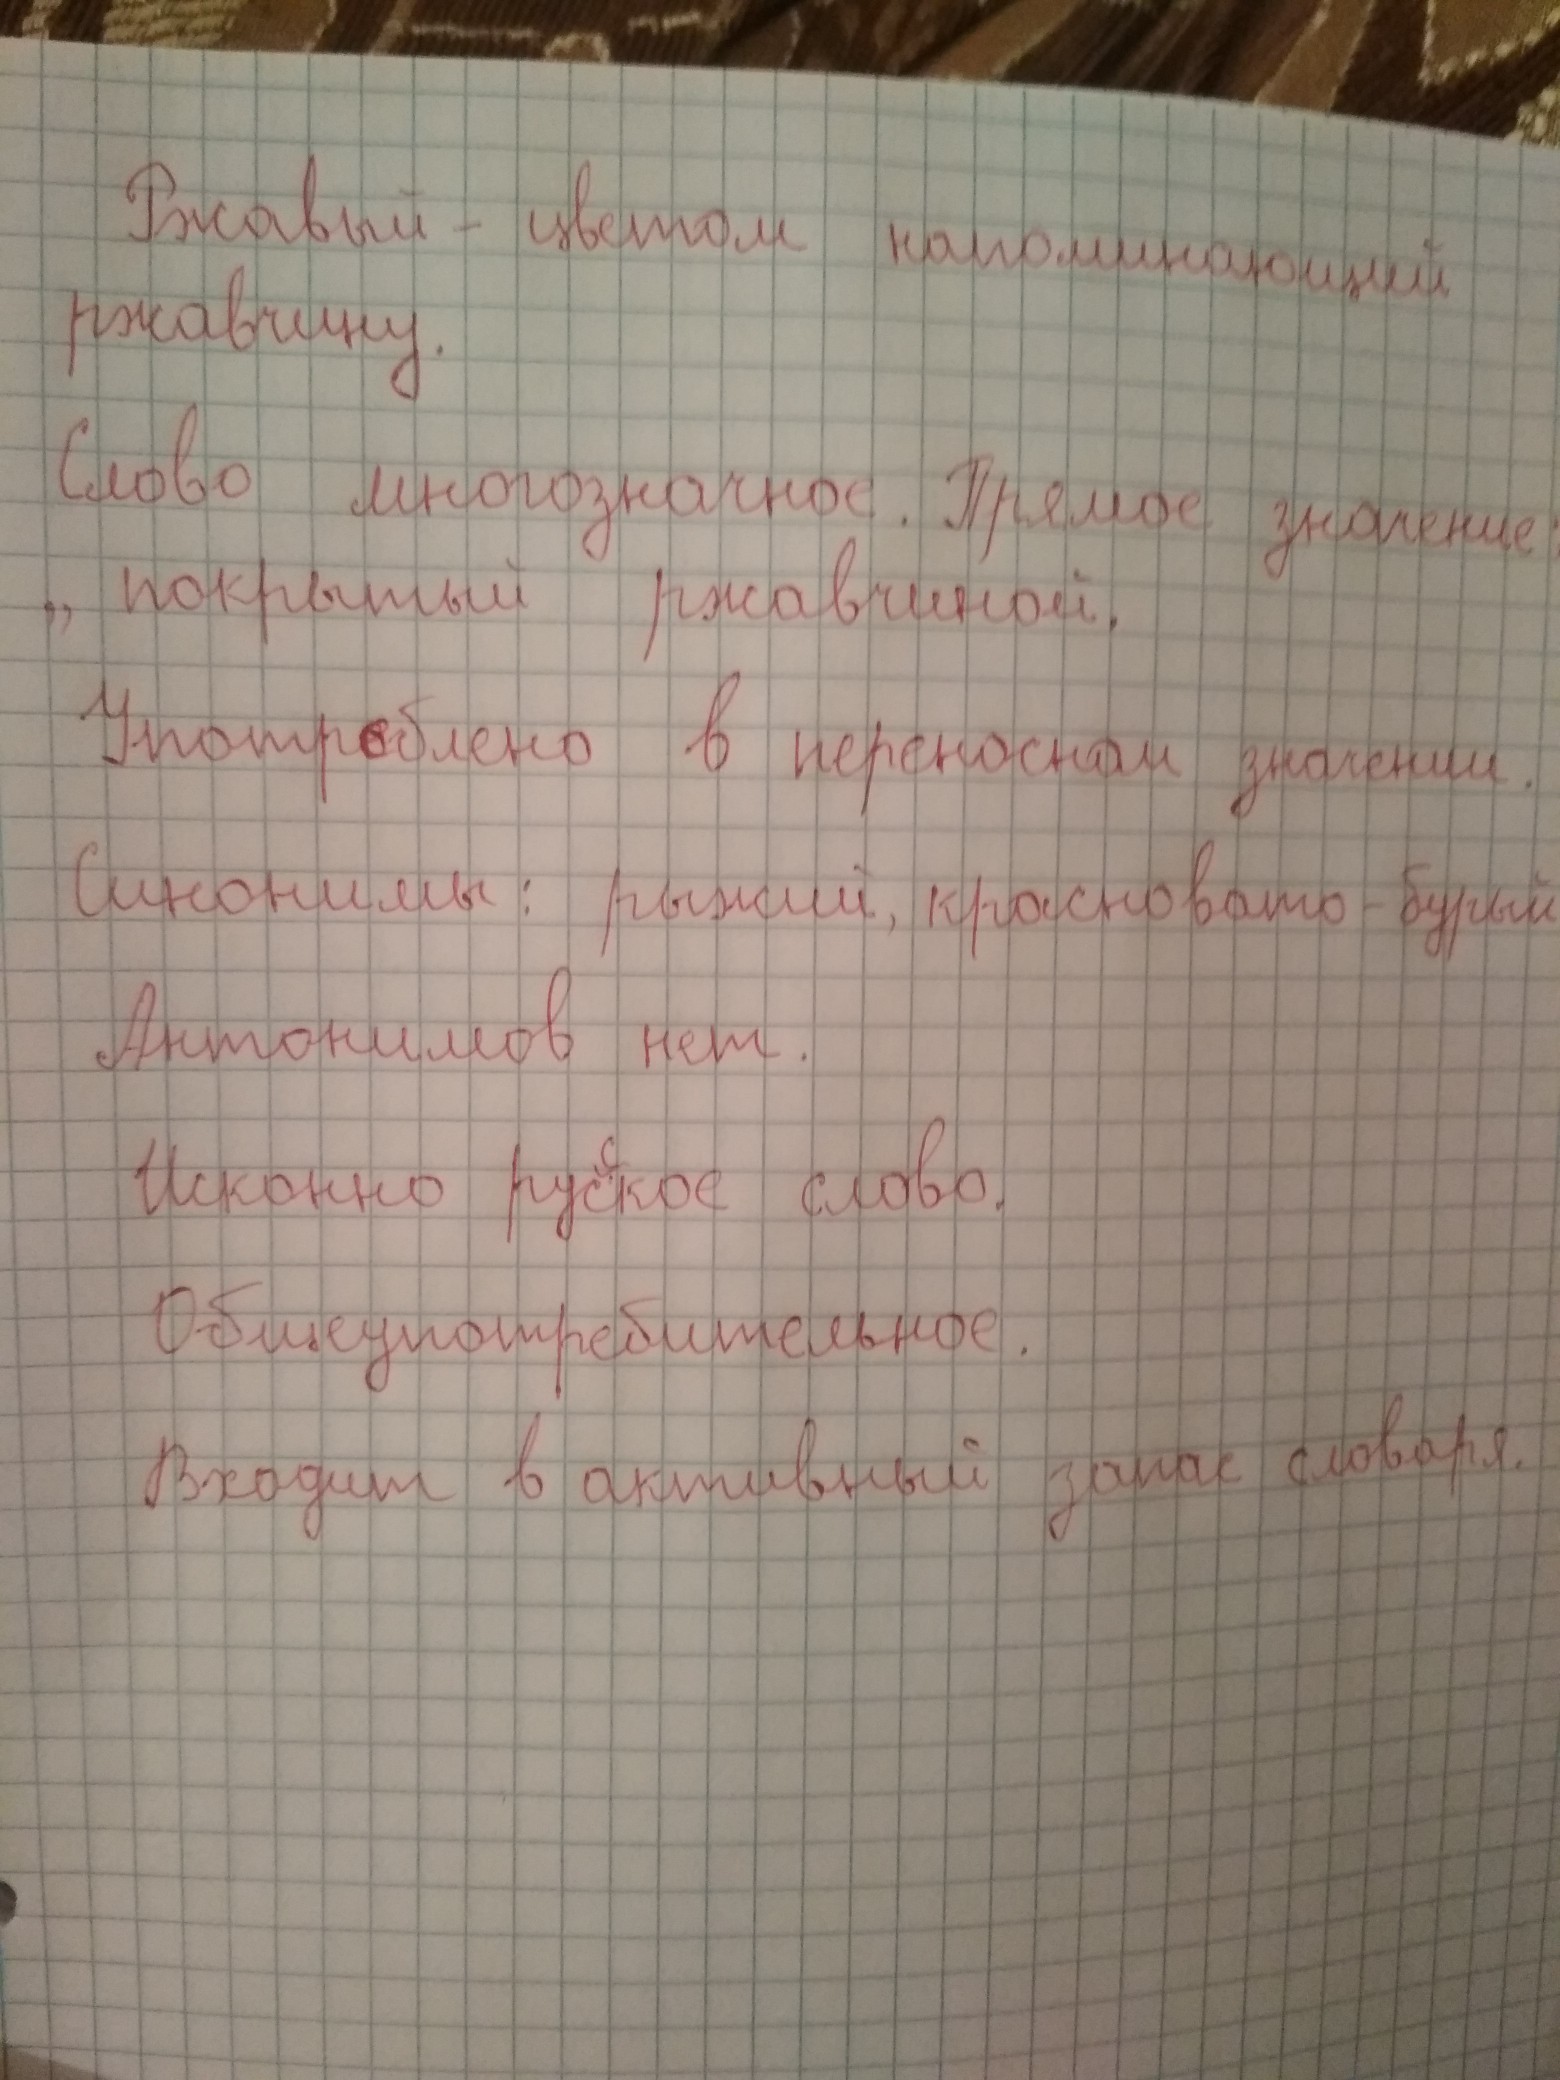 Ржавый - цветом напоминающий
ржавчину.
Слово многозначное. Прямое значение:
„ покрытый ржавчиной.
Употреблено в переносном значении.
Синонимы: рыжий, красновато-бурый
Антонимов нет.
Исконно русское слово.
Общеупотребительное.
Входит в активный запас словаря.